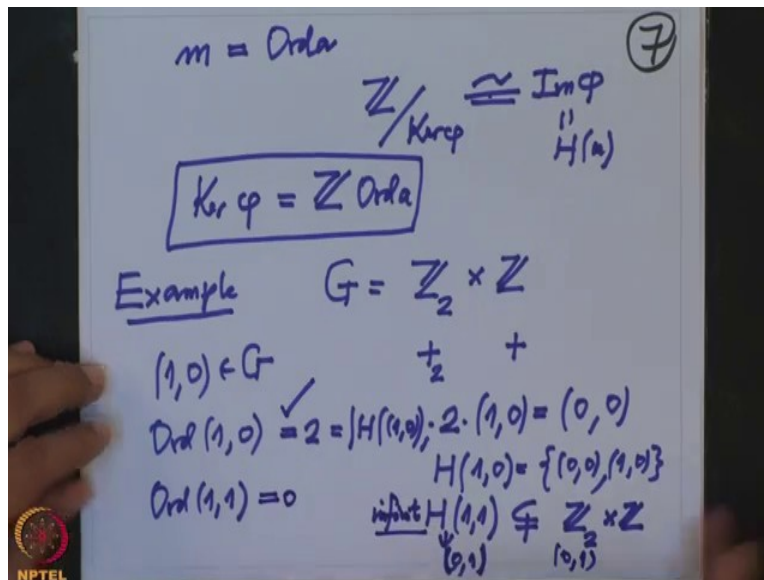 m = Ord a
7
ℤ/Ker φ ≃ Im φ
= H(a)
Ker φ = ℤ Ord a
Example G = ℤ₂ × ℤ
(1,0) ∈ G +₂ +
Ord (1,0) = 2 = |H((1,0)), 2·(1,0) = (0,0)
✓
H(1,0) = {(0,0), (1,0)}
Ord (1,1) = 0
infinit H(1,1) ⊊ ℤ₂ × ℤ
(0,1) (0,1)
NPTEL